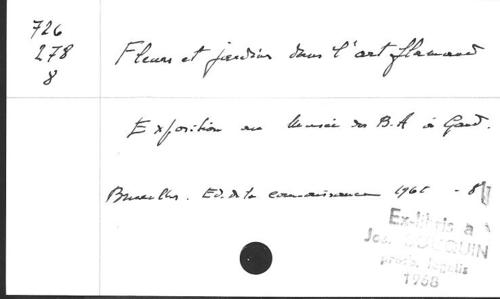 726
278
8
Fleurs et jardins dans l'art flamand
Exposition au Musée des B.A à Gand.
Bruxelles. Ed. de la connaissance 1960 - 8
Ex-libris a
Jos.
prof. legalis
1968